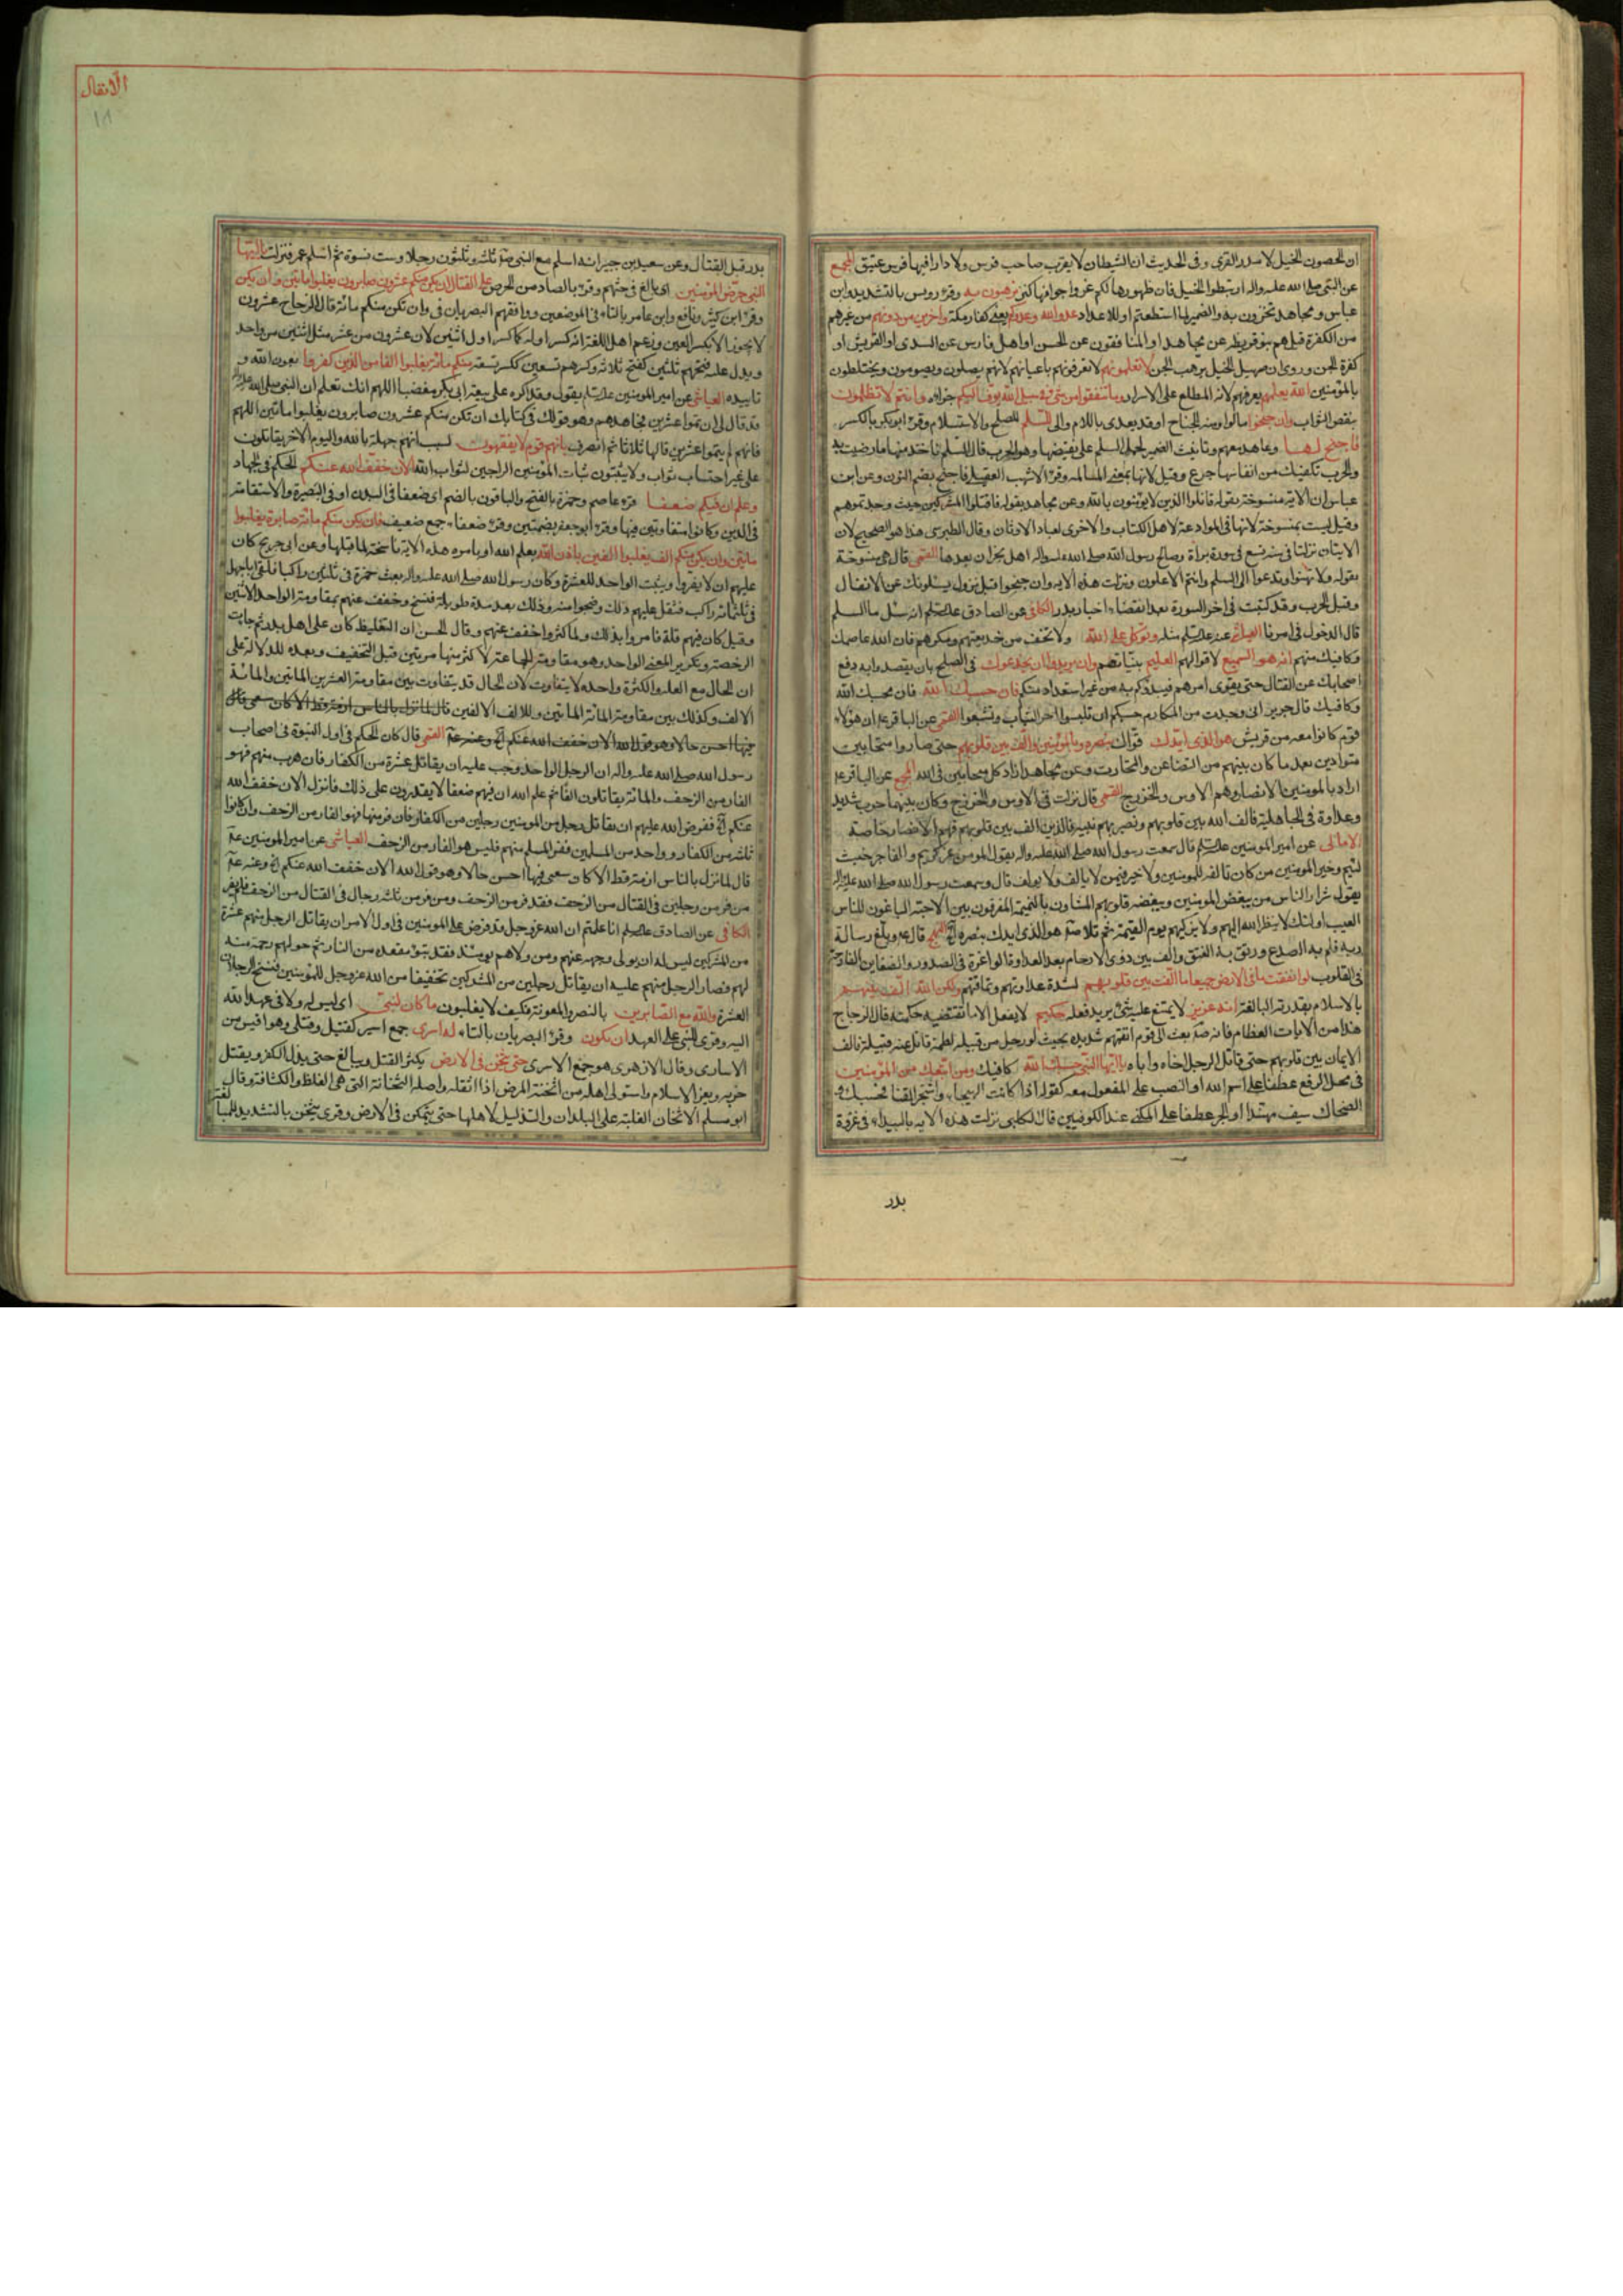 ان الحصون الخيل لا مدر القرى وفى الحديث ان الشيطان لا يقرب صاحب فرس ولا دارا فيها فرس عتيق المجمع
عن النبى صلى الله عليه واله ارتبطوا الخيل فان ظهورها لكم عز واجوافها كنز ترهبون به وقرء رويس بالتشديد وابن
عباس ومجاهد تخزون به والضمير لما استطعتم او للاعداد عدو الله وعدوكم يعنى كفار مكة واخرين من دونهم من غيرهم
من الكفرة قيل هم بنو قريظه عن مجاهد او المنافقون عن الحسن او اهل فارس عن السدى او القريش او
كفرة الجن وروى ان صهيل الخيل يرهب الجن لا تعلمونهم لا تعرفونهم باعيانهم لانهم يصلون ويصومون ويختلطون
بالمؤمنين الله يعلمهم يعرفهم لانه المطلع على الاسرار وما تنفقوا من شئ فى سبيل الله يوف اليكم جزاؤه وانتم لا تظلمون
بنقص الثواب وان جنحوا مالوا ومنه الجناح او قد يعدى باللام والى للسلم للصلح والاستسلام وقرء ابو بكر بالكسر
فاجنح لها وعاهد معهم وتانيث الضمير لحمل السلم على نقيضها وهو الحرب قال السلم تاخذ منها ما رضيت به
والحرب تكفيك من انفاسها جرع وقيل لانها بمعنى المسالمه وقرء الاشهب العقيلى فاجنح بضم النون وعن ابن
عباس ان الاية منسوخة بقوله قاتلوا الذين لا يؤمنون بالله وعن مجاهد بقوله فاقتلوا المشركين حيث وجدتموهم
وقيل ليست بمنسوخة لانها فى الموادعة لاهل الكتاب والاخرى لعباد الاوثان وقال الطبرسى هذا هو الصحيح لان
الايتان نزلتا فى سنه تسع فى سورة براة وصالح رسول الله صلى الله عليه واله اهل نجران بعدها القمى قال هى منسوخة
بقوله ولا تهنوا وتدعوا الى السلم وانتم الاعلون ونزلت هذه الايه وان جنحوا قبل نزول يسئلونك عن الانفال
وقبل الحرب وقد كتبت فى اخر السورة بعد انقضاء اخبار بدر الكافى عن الصادق عليه السلم انه سئل ما السلم
قال الدخول فى امرنا العياشى عنه عليه السلم مثله وتوكل على الله ولا تخف من خديعتهم ومكرهم فان الله عاصمك
وكافيك منهم انه هو السميع لاقوالهم العليم بنياتهم وان يريدوا ان يخدعوك فى الصلح بان يقصدوا به دفع
اصحابك عن القتال حتى يقوى امرهم فيبدؤكم به من غير استعداد منكم فان حسبك الله فان محسبك الله
وكافيك قال جرير انى وجدت من المكارم حسبكم ان تلبسوا اخر الثياب وتشبعوا القمى عن الباقر ع ان هؤلاء
قوم كانوا معه من قريش هو الذى ايدك قواك بنصره وبالمؤمنين والف بين قلوبهم حتى صاروا متحابين
متوادين بعد ما كان بينهم من التضاغن والتحارب وعن مجاهد اراد كل متحابين فى الله المجمع عن الباقر ع
اراد بالمومنين الانصار وهم الاوس والخزرج القمى قال نزلت فى الاوس والخزرج وكان بينهما حرب شديد
وعداوة فى الجاهلية فالف الله بين قلوبهم ونصر بهم نبيه فالذين الف بين قلوبهم فهم الانصار خاصة
الامالى عن امير المومنين عليه السلم قال سمعت رسول الله صلى الله عليه واله يقول المومن غر كريم والفاجر خبث
لئيم وخير المومنين من كان تالفه للمومنين ولا خير فيمن لا يالف ولا يولف قال وسمعت رسول الله صلى الله عليه واله
يقول شرار الناس من يبغض المومنين ويبغضه قلوبهم المشاون بالنميمة المفرقون بين الاحبة الباغون للناس
العيب اولئك لا ينظر الله اليهم ولا يزكيهم يوم القيمة ثم تلا ص هو الذى ايدك بنصره الخ قال ع وبلغ رسالة
ربه فلم به الصدع ورتق به الفتق والف بين ذوى الارحام بعد العداوة الواغرة فى الصدور والضغاين القادحة
فى القلوب لو انفقت ما فى الارض جميعا ما الفت بين قلوبهم لشدة عداوتهم وتماقتهم ولكن الله الف بينهم
بالاسلام بقدرته البالغة انه عزيز لا يمتنع عليه شئ يريد فعله حكيم لا يفعل الا ما تقتضيه حكمته قال الزجاج
هذا من الايات العظام فانه ص بعث الى قوم انفتهم شديده بحيث لو رجل من قبيلة لطمه قاتل عنه قبيلته فالف
الايمان بين قلوبهم حتى قاتل الرجل اخاه واباه يا ايها النبى حسبك الله كافيك ومن اتبعك من المؤمنين
فى محل الرفع عطفا على اسم الله او النصب على المفعول معه كقوله اذا كانت الهيجاء واشتجر القنا فحسبك و
الضحاك سيف مهندا او الجر عطفا على المكنى عند الكوفيين قال الكلبى نزلت هذه الايه بالبيداء فى غزوة
بدر
الانفال
١٨
بدر قبل القتال وعن سعيد بن جبير انه اسلم مع النبى ص ثلثه وثلثون رجلا وست نسوة ثم اسلم عمر فنزلت يا ايها
النبى حرض المؤمنين اى بالغ فى حثهم وقرء بالصاد من الحرص على القتال ان يكن منكم عشرون صابرون يغلبوا مائتين وان يكن
وقرء ابن كثير ونافع وابن عامر بالتاء فى الموضعين ووافقهم البصريان فى وان تكن منكم مائة قال الزجاج عشرون
لا يجوز الا بكسر العين وزعم اهل اللغة انه كسر اوله كما كسر اول اثنين لان عشرون من عشر مثل اثنين من واحد
ويدل عليه فتحهم ثلثين كفتح ثلاثه وكسرهم تسعين ككسر تسعة منكم مائة يغلبوا الفا من الذين كفروا بعون الله و
تاييده العياشى عن امير المومنين عليه السلم يقول وقد اكره على بيعة ابى بكر مغضبا اللهم انك تعلم ان النبى صلى الله عليه واله
قد قال لى ان تموا عشرين فجاهدهم وهو قولك فى كتابك ان تكن منكم عشرون صابرون يغلبوا مائتين اللهم
فانهم لم يتموا عشرين قالها ثلاثا ثم انصرف بانهم قوم لا يفقهون بسبب انهم جهلة بالله واليوم الاخر يقاتلون
على غير احتساب ثواب ولا يثبتون ثبات المؤمنين الراجين لثواب الله الان خفف الله عنكم الحكم فى الجهاد
وعلم ان فيكم ضعفا قرء عاصم وحمزة بالفتح والباقون بالضم اى ضعفا فى البدن او فى البصيرة والاستقامة
فى الدين وكانوا متفاوتين فيها وقرء ابو جعفر بضمتين وقرء ضعفاء جمع ضعيف فان يكن منكم مائة صابرة يغلبوا
مائتين وان يكن منكم الف يغلبوا الفين باذن الله بعلم الله او بامره هذه الاية ناسخة لما قبلها وعن ابى جريح كان
عليهم ان لا يفروا ويثبت الواحد للعشرة وكان رسول الله صلى الله عليه واله بعث حمزة فى ثلثين راكبا فلقى اباجهل
فى ثلثمائه راكب فثقل عليهم ذلك وضجوا منه وذلك بعد مدة طويلة فنسخ وخفف عنهم بمقاومة الواحد الاثنين
وقيل كان فيهم قلة فامروا بذلك ولما كثروا خفف عنهم وقال الحسن ان التغليظ كان على اهل بدر ثم جاءت
الرخصة وتكرير المعنى الواحد وهو مقاومة الجماعة لاكثر منها مرتين قبل التخفيف وبعده للدلالة على
ان الحال مع القلة والكثرة واحده لا يتفاوت لان الحال قد يتفاوت بين مقاومة العشرين المائتين والمائة
الالف وكذلك بين مقاومة المائة المائتين وللالف الالفين قال لما نزل بالناس ازمة قط الا كان سعى قال
فيها احسن حالا وهو قول الله الان خفف الله عنكم الخ وعنه ع القمى قال كان الحكم فى اول النبوة فى اصحاب
رسول الله صلى الله عليه واله ان الرجل الواحد وجب عليه ان يقاتل عشرة من الكفار فان هرب منهم فهو
الفار من الزحف والمائة يقاتلون الفا ثم علم الله ان فيهم ضعفا لا يقدرون على ذلك فانزل الان خفف الله
عنكم الخ ففرض الله عليهم ان يقاتل رجل من المومنين رجلين من الكفار فان فر منهما فهو الفار من الزحف وان كانوا
ثلثه من الكفار وواحد من المسلمين ففر المسلم منهم فليس هو الفار من الزحف العياشى عن امير المومنين ع
قال لما نزل بالناس ازمة قط الا كان سعى فيها احسن حالا وهو قول الله الان خفف الله عنكم الخ وعنه ع
من فر من رجلين فى القتال من الزحف فقد فر من الزحف ومن فر من ثلث رجال فى القتال من الزحف فلم يفر
الكافى عن الصادق عليه السلم اما علمتم ان الله عز وجل قد فرض على المومنين فى اول الامر ان يقاتل الرجل منهم عشرة
من المشركين ليس له ان يولى وجهه عنهم ومن ولاهم يومئذ فقد تبوء مقعده من النار ثم حولهم رحمة منه
لهم فصار الرجل منهم عليه ان يقاتل رجلين من المشركين تخفيفا من الله عز وجل للمؤمنين فنسخ الرجلان
العشرة والله مع الصابرين بالنصر والمعونة فكيف لا يغلبون ما كان لنبى اى ليس له ولا فى عهد الله
اليه وقرئ للنبى على العهد ان يكون وقرء البصريان بالتاء له اسرى جمع اسير كقتيل وقتلى وهو اقيس من
الاسارى وقال الازهرى هو جمع الاسرى حتى يثخن فى الارض يكثر القتل ويبالغ حتى يذل الكفر ويقتل
حزبه ويعز الاسلام واستولى اهله من اثخنه المرض اذا اثقله واصله الثخانة التى هى الغلظ والكثافة وقال
ابو مسلم الاثخان الغلبة على البلدان والتذليل لاهلها حتى يتمكن فى الارض وقرئ يثخن بالتشديد للمبالغة